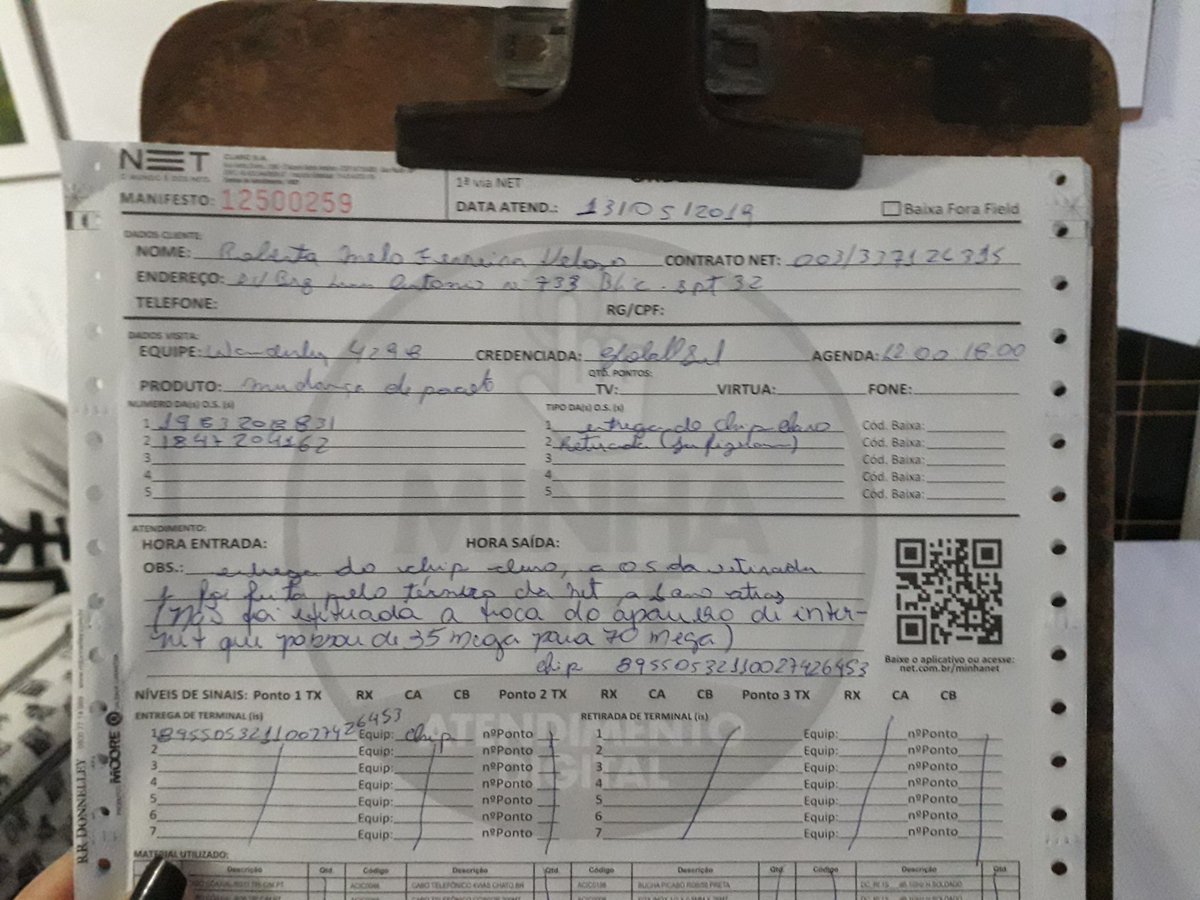 NET
O MUNDO É DOS NETS
CLARO S.A.
1ª via NET
MANIFESTO: 12500259
DATA ATEND.: 13/05/2019
Baixa Fora Field
DADOS CLIENTE:
NOME: Roberta Melo Ferreira Veloso CONTRATO NET: 003/337126395
ENDEREÇO: Brg Luis Antonio nº 733 Bl c. apt 32
TELEFONE: RG/CPF:
DADOS VISITA:
EQUIPE: Wanderley 4298 CREDENCIADA: Global Sul AGENDA: 12:00 18:00
QTD. PONTOS:
PRODUTO: mudança de pacot TV: VIRTUA: FONE:
NÚMERO DA(s) O.S. (s) TIPO DA(s) O.S. (s)
1 1983208831 1 entrega do chip claro Cód. Baixa:
2 1847204162 2 Retirada Cód. Baixa:
3 3 Cód. Baixa:
4 4 Cód. Baixa:
5 5 Cód. Baixa:
MINHA
ATENDIMENTO:
HORA ENTRADA: HORA SAÍDA:
OBS.: entrega do chip claro, a OS da retirada
foi feita pelo técnico da net a 1 ano atras
(Não foi efetuada a troca do aparelho di inter-
net que passou de 35 mega para 70 mega)
chip 89550532110027426453
Baixe o aplicativo ou acesse:
net.com.br/minhanet
NÍVEIS DE SINAIS: Ponto 1 TX RX CA CB Ponto 2 TX RX CA CB Ponto 3 TX RX CA CB
ENTREGA DE TERMINAL (is) RETIRADA DE TERMINAL (is)
1 89550532110027426453 Equip: chip nºPonto 1 Equip: nºPonto
2 Equip: nºPonto 2 Equip: nºPonto
3 Equip: nºPonto 3 Equip: nºPonto
4 Equip: nºPonto 4 Equip: nºPonto
5 Equip: nºPonto 5 Equip: nºPonto
6 Equip: nºPonto 6 Equip: nºPonto
7 Equip: nºPonto 7 Equip: nºPonto
ATENDIMENTO
DIGITAL
RR DONNELLEY
MOORE
MATERIAL UTILIZADO:
Descrição Qtd. Código Descrição Qtd. Código Descrição Qtd. Código Descrição Qtd.